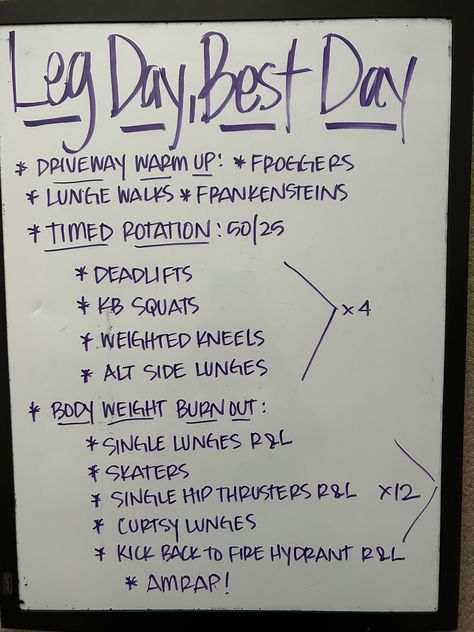 Leg Day, Best Day
* DRIVEWAY WARM UP: * FROGGERS
* LUNGE WALKS * FRANKENSTEINS
* TIMED ROTATION: 50/25
* DEADLIFTS
* KB SQUATS
x4
* WEIGHTED KNEELS
* ALT SIDE LUNGES
* BODY WEIGHT BURN OUT:
* SINGLE LUNGES R&L
* SKATERS
* SINGLE HIP THRUSTERS R&L x12
* CURTSY LUNGES
* KICK BACK TO FIRE HYDRANT R&L
* AMRAP!